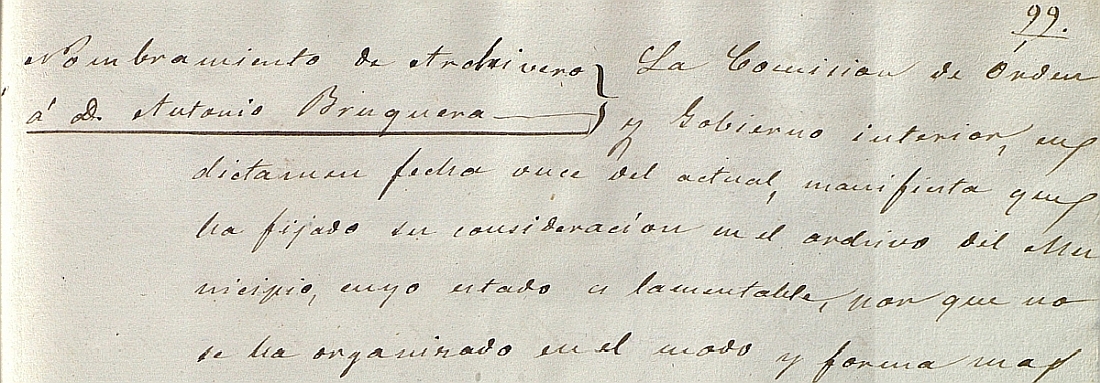 99.
Nombramiento de Archivero
á D. Antonio Bruguera
La Comision de Órden
y Gobierno interior, en
dictamen fecha once del actual, manifiesta que
ha fijado su consideración en el archivo del Mu
nicipio, cuyo estado es lamentable, por que no
se ha organizado en el modo y forma mas